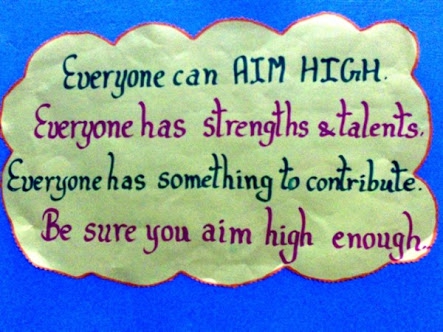 Everyone can AIM HIGH.
Everyone has strengths & talents.
Everyone has something to contribute.
Be sure you aim high enough..